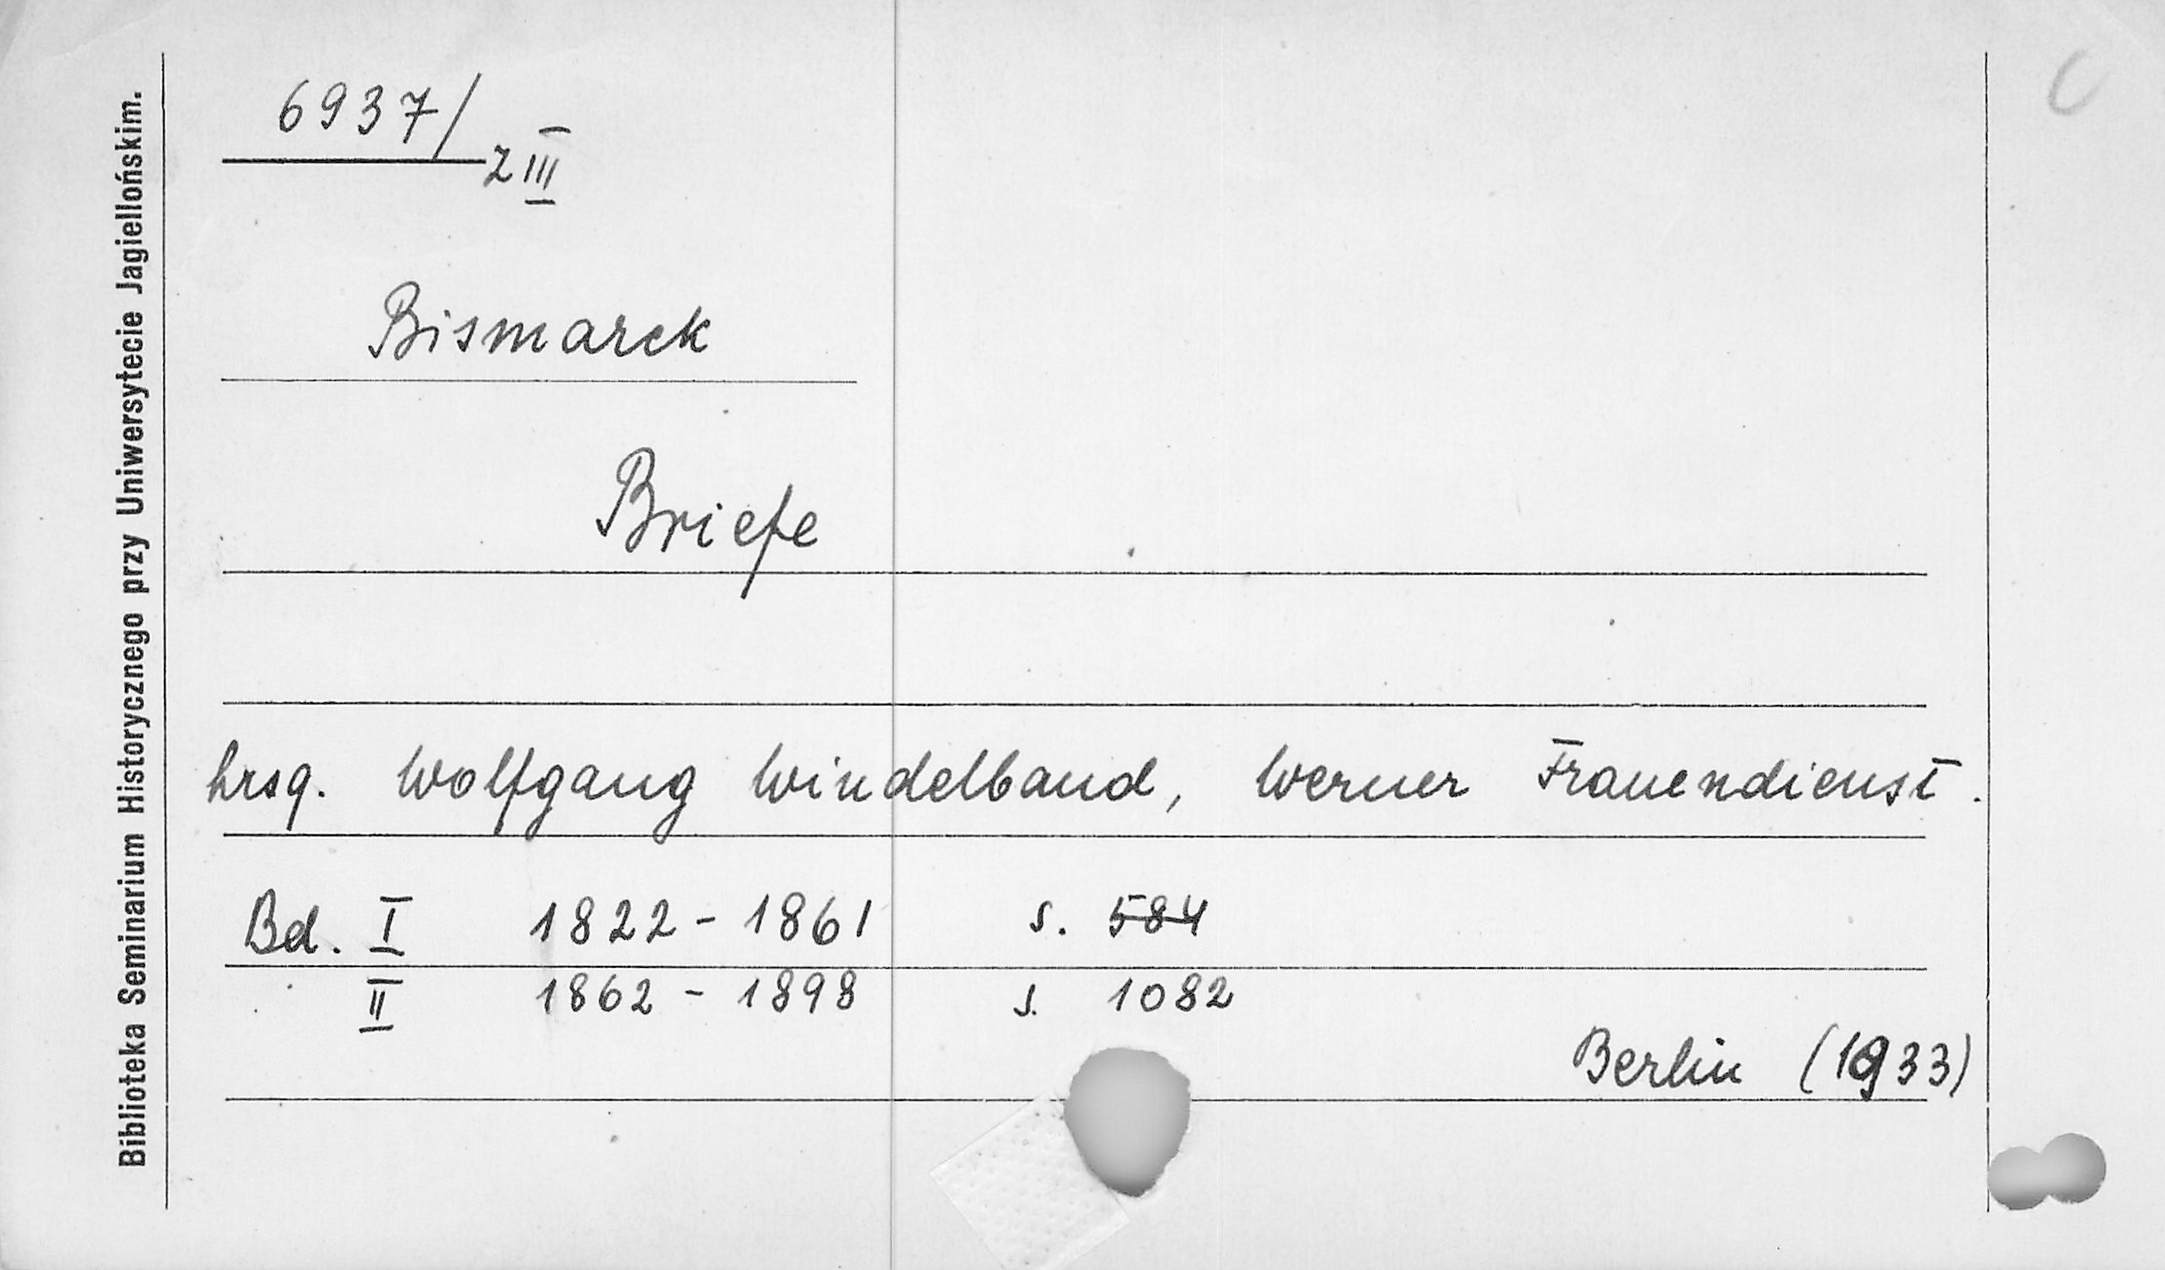 Biblioteka Seminarium Historycznego przy Uniwersytecie Jagiellońskim.
6937/
Z III
Bismarck
Briefe
hrsg. Wolfgang Windelband, Werner Frauendienst.
Bd. I 1822-1861 s. 584
II 1862 - 1898 s. 1082
Berlin (1933)